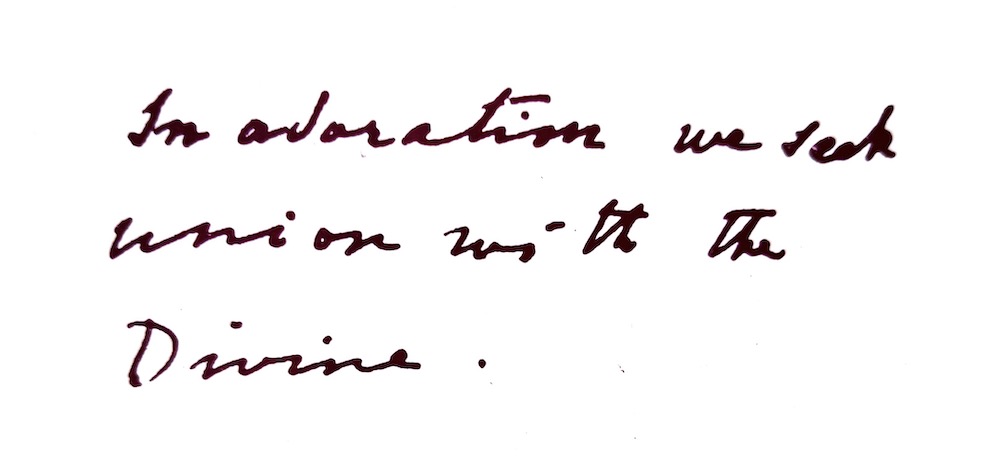 In adoration we seek
union with the
Divine.